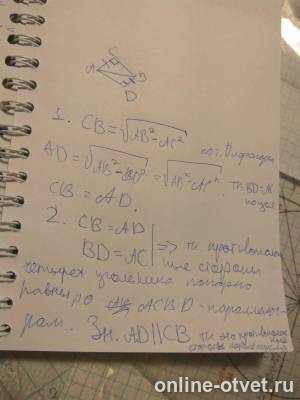 C
A
B
D
1. CB = √AB²-AC² по т. Пифагора
AD = √AB²-BD² = √AB²-AC², тк BD=AC по усл
CB = AD.
2. CB = AD
BD = AC | => тк противополож
ные стороны
четырехугольника попарно
равны, то ACBD - параллелог-
рам. Зн. AD||CB тк это противополож
ные
стороны параллелограмма
online-otvet.ru